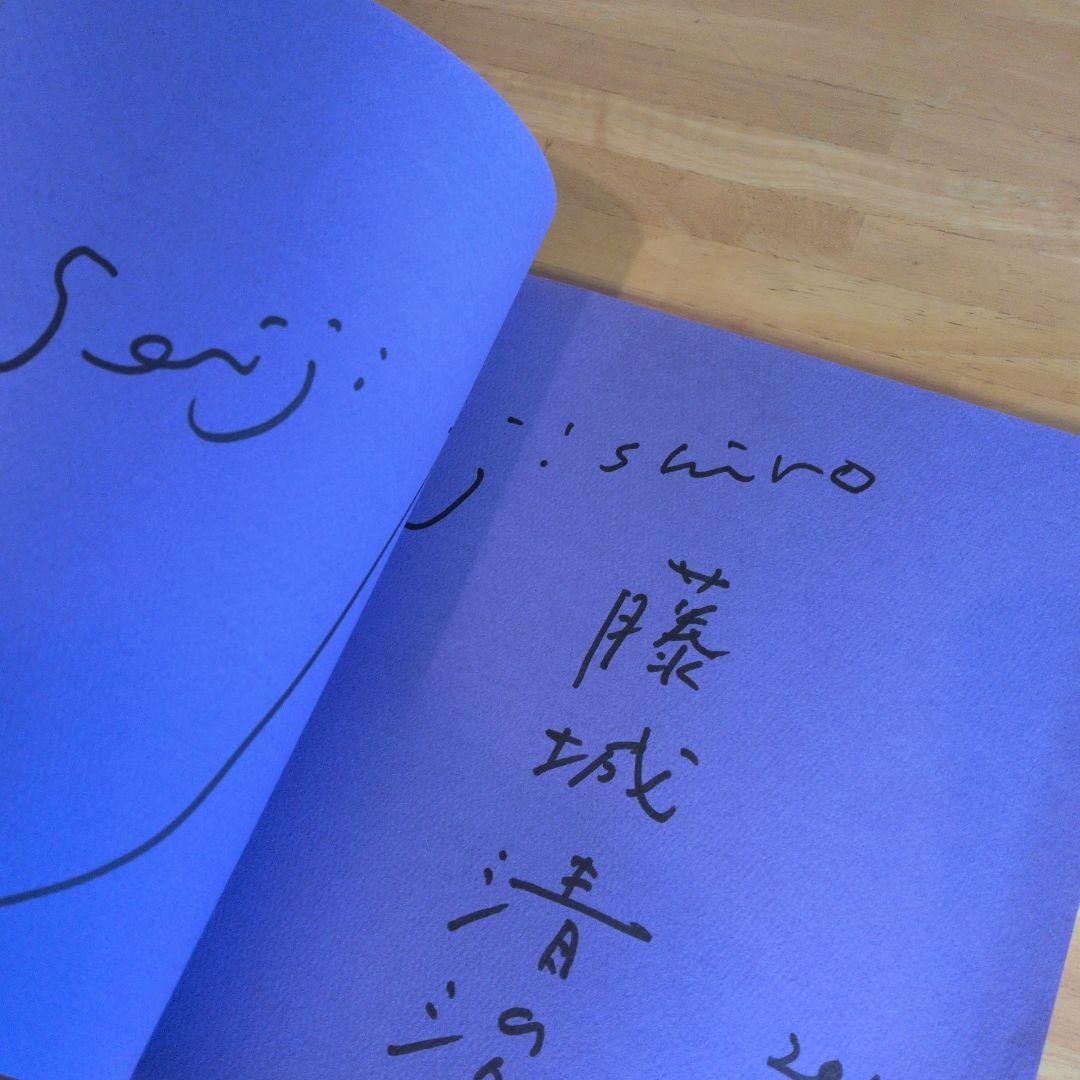 Seiji
jishiro
藤城清治
20